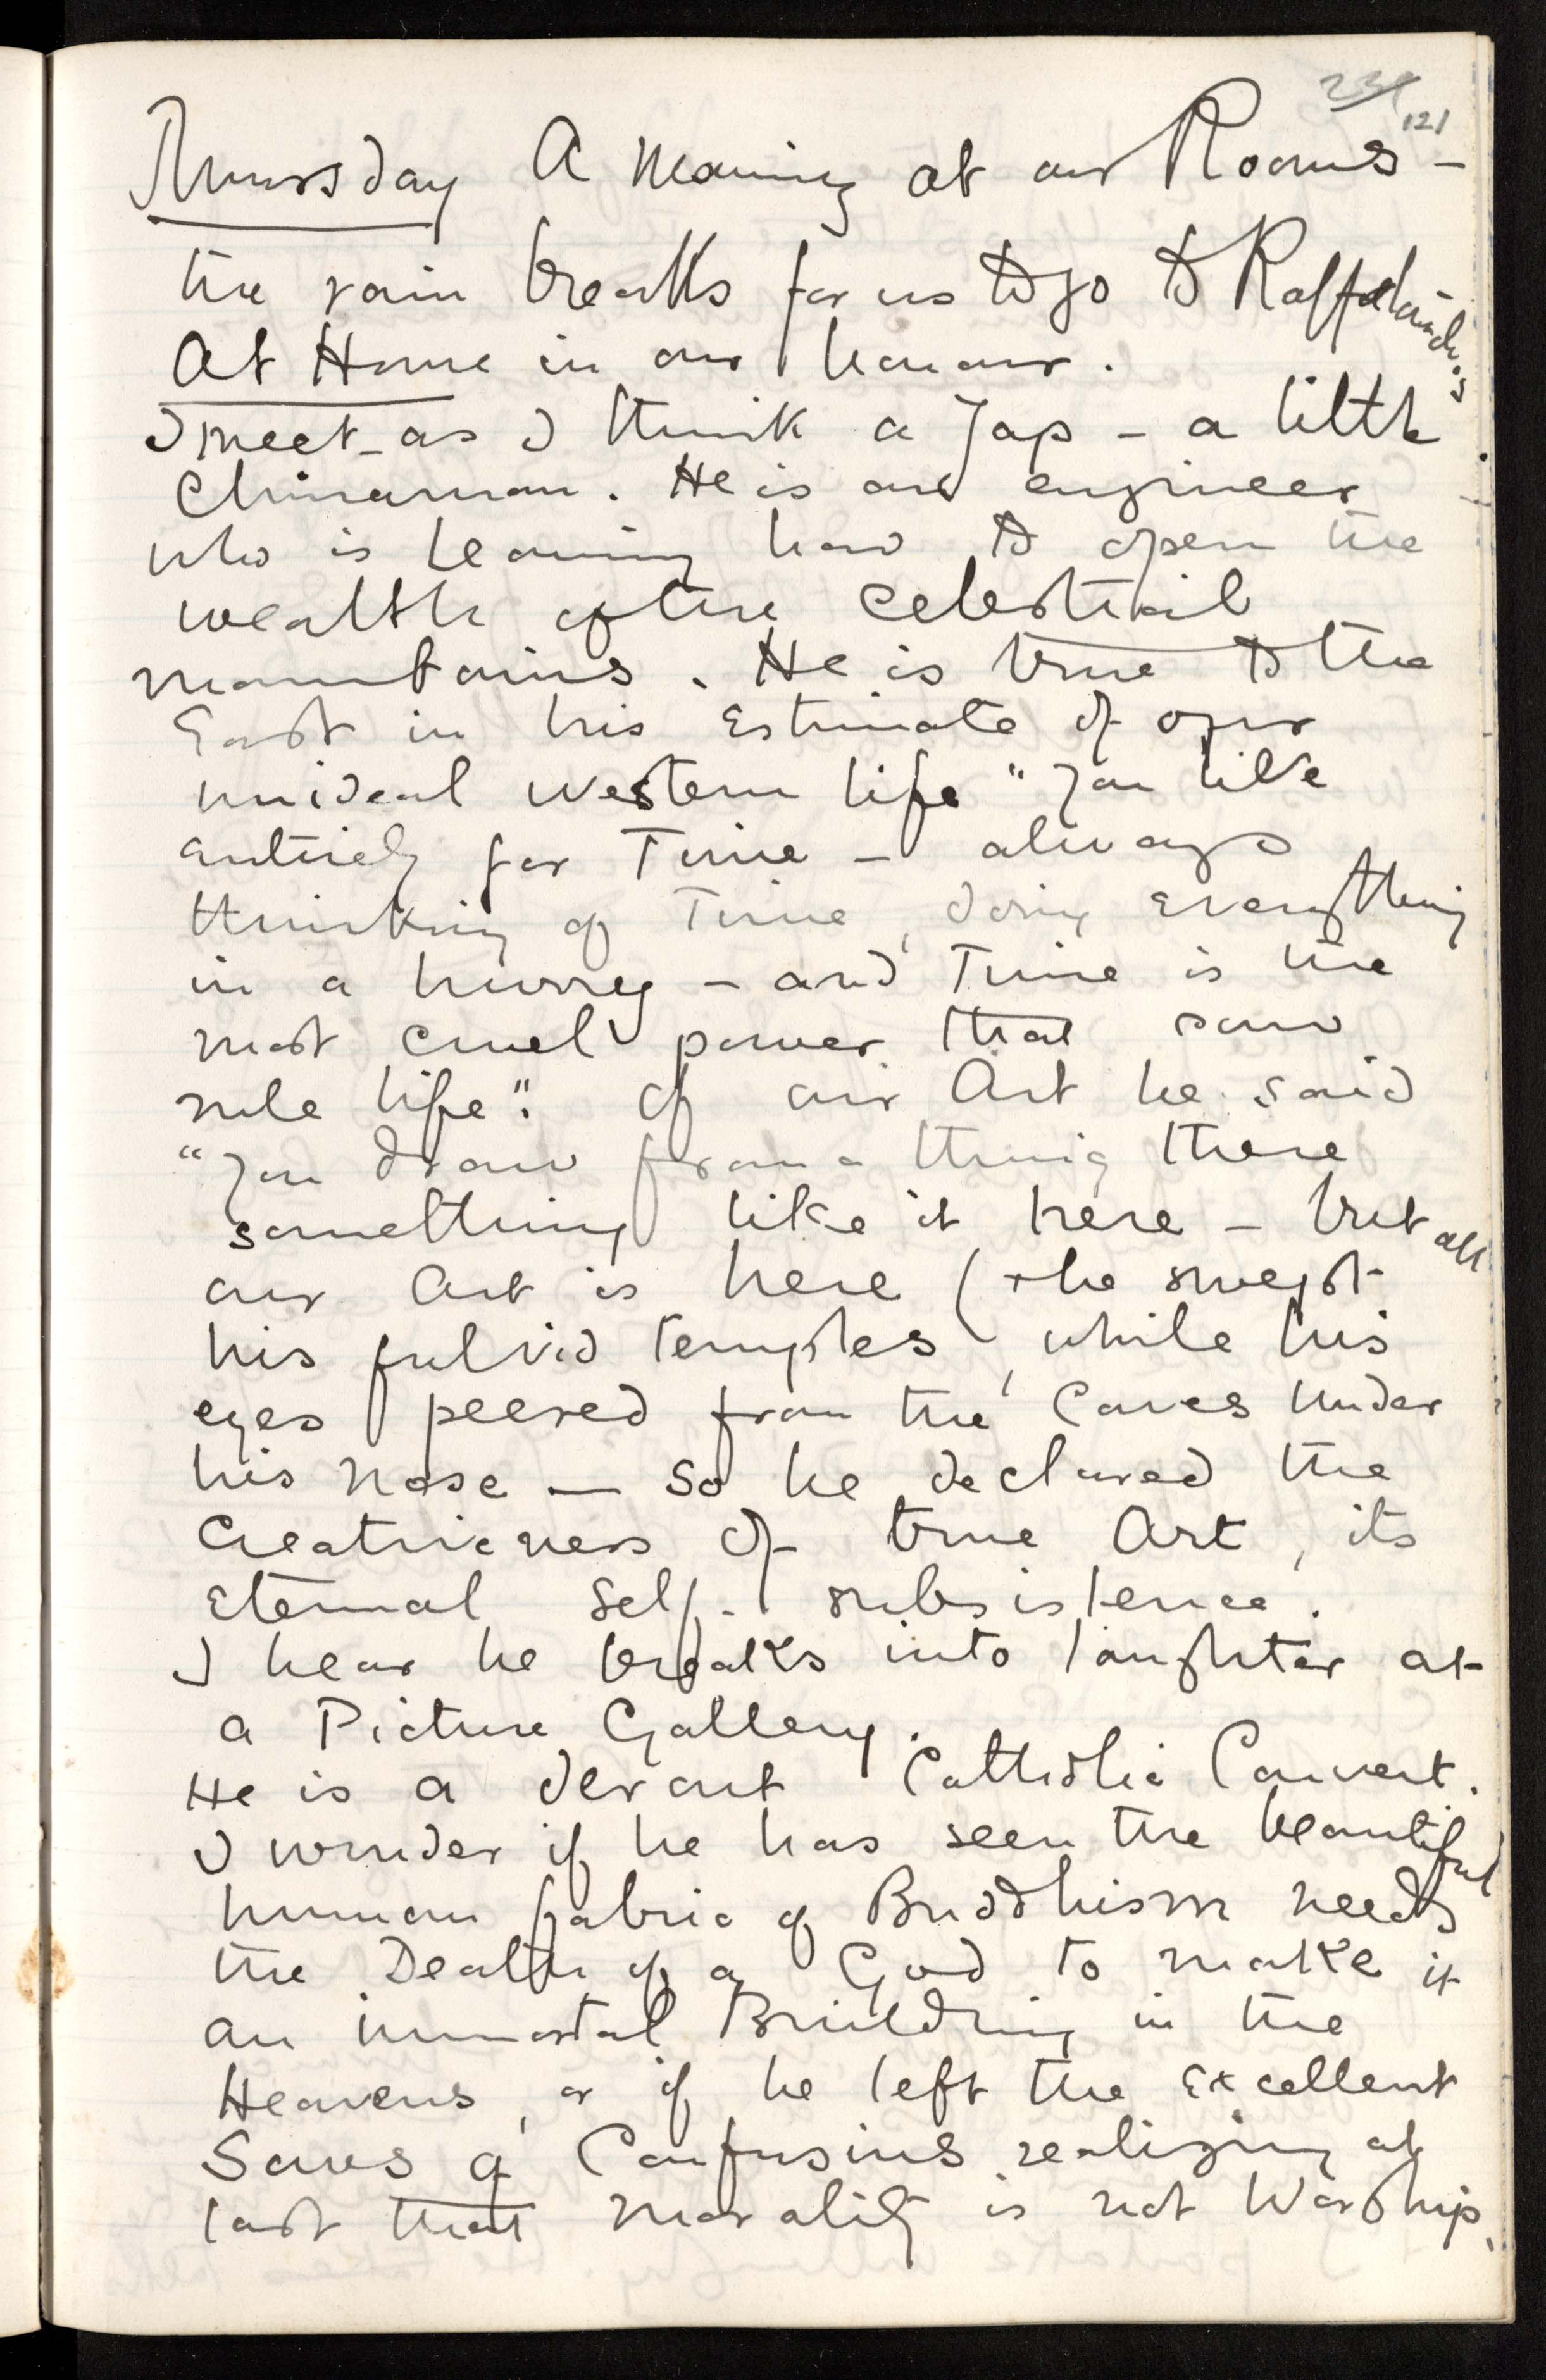 121
Thursday A Morning at our Rooms –
the rain breaks for us to go to Raffalovich's
At Home in our honour.
I meet – as I think a Jap – a little
Chinaman. He is an engineer
who is learning how to open the
wealth of the Celestial
mountains. He is true to the
East in his estimate of our
unideal western life "You live
entirely for Time – always
thinking of Time, doing everything
in a hurry – and Time is the
most cruel power that can
rule life". Of our Art he said
"You draw from a thing there
something like it here – but all
our Art is here (& he swept
his fulvid temples, while his
eyes peered from the Caves under
his nose – so he declared the
Creativeness of true Art, its
Eternal Self-subsistence.
I hear he breaks into laughter at
a Picture Gallery.
He is a devout Catholic Convert.
I wonder if he has seen the beautiful
human fabric of Buddhism needs
the Death of a God to make it
an immortal Building in the
Heavens, or if he left the excellent
Saws of Confusius realizing at
last that morality is not Worship.